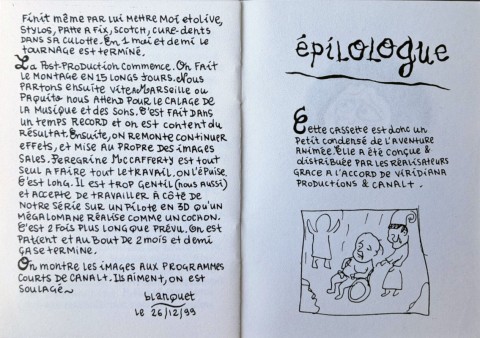 Finit même par lui mettre Moi et Olive,
stylos, Patte a fix, scotch, cure-dents
dans sa culotte. En 1 mai et demi le
tournage est terminé.
La Post-Production commence. On fait
le montage en 15 longs jours. Nous
partons ensuite vite à Marseille ou
Paquito nous attend pour le calage de
la musique et des sons. C'est fait dans
un temps record et on est content du
résultat. Ensuite, on remonte continuer
effets, et mise au propre des images
sales. Peregrine McCafferty est tout
seul a faire tout le travail. On l'épuise.
C'est long. Il est trop gentil (nous aussi)
et accepte de travailler à côté de
notre série sur un pilote en 3D qu'un
mégalomane réalise comme un cochon.
C'est 2 fois plus long que prévu. On est
patient et au bout de 2 mois et demi
ça se termine.
On montre les images aux programmes
courts de Canal+. Ils aiment, on est
soulagé~
blanquet
le 26/12/99
épilologue
Cette cassette est donc un
petit condensé de l'aventure
animée. Elle a été conçue &
distribuée par les réalisateurs
grace a l'accord de Viridiana
Productions & Canal+.